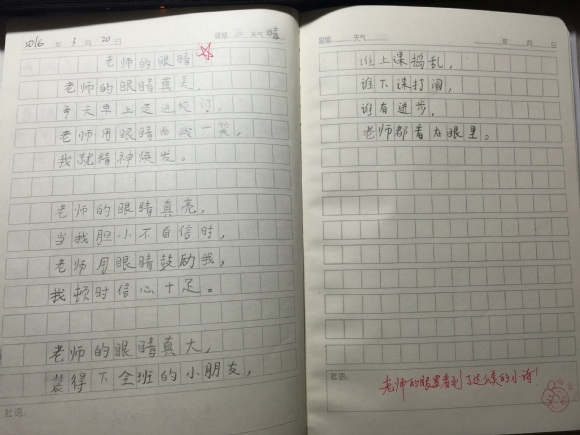 2016 年 3 月 20 日 星期 天气
老师的眼睛
老师的眼睛真美,
每天早上走进校订,
老师用眼睛向我一笑,
我就精神焕发。
老师的眼睛真亮,
当我胆小不自信时,
老师用眼睛鼓励我,
我顿时信心十足。
老师的眼睛真大,
装得下全班的小朋友,
批语:
星期 天气 年 月 日
谁上课捣乱,
谁下课打闹,
谁有进步,
老师都看在眼里。
批语:
老师的眼里看到了这么美的小诗!